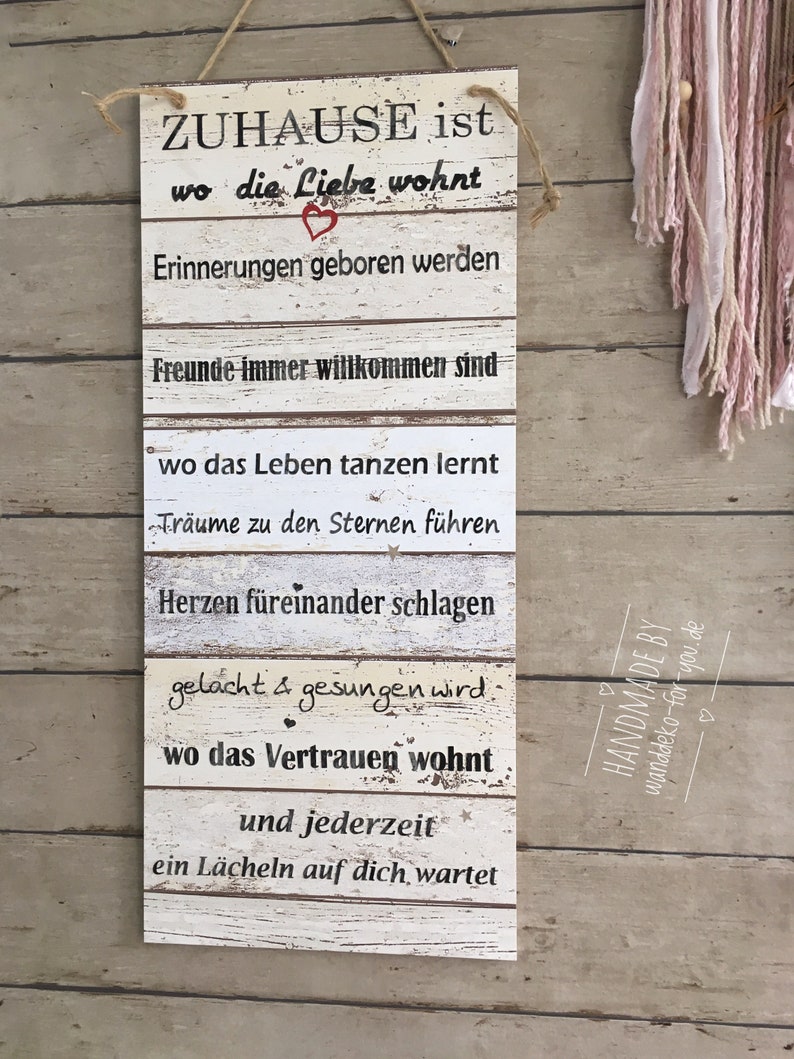 ZUHAUSE ist
wo die Liebe wohnt
Erinnerungen geboren werden
Freunde immer willkommen sind
wo das Leben tanzen lernt
Träume zu den Sternen führen
Herzen füreinander schlagen
gelacht & gesungen wird
wo das Vertrauen wohnt
und jederzeit
ein Lächeln auf dich wartet
HANDMADE BY
wanddeko-for-you.de